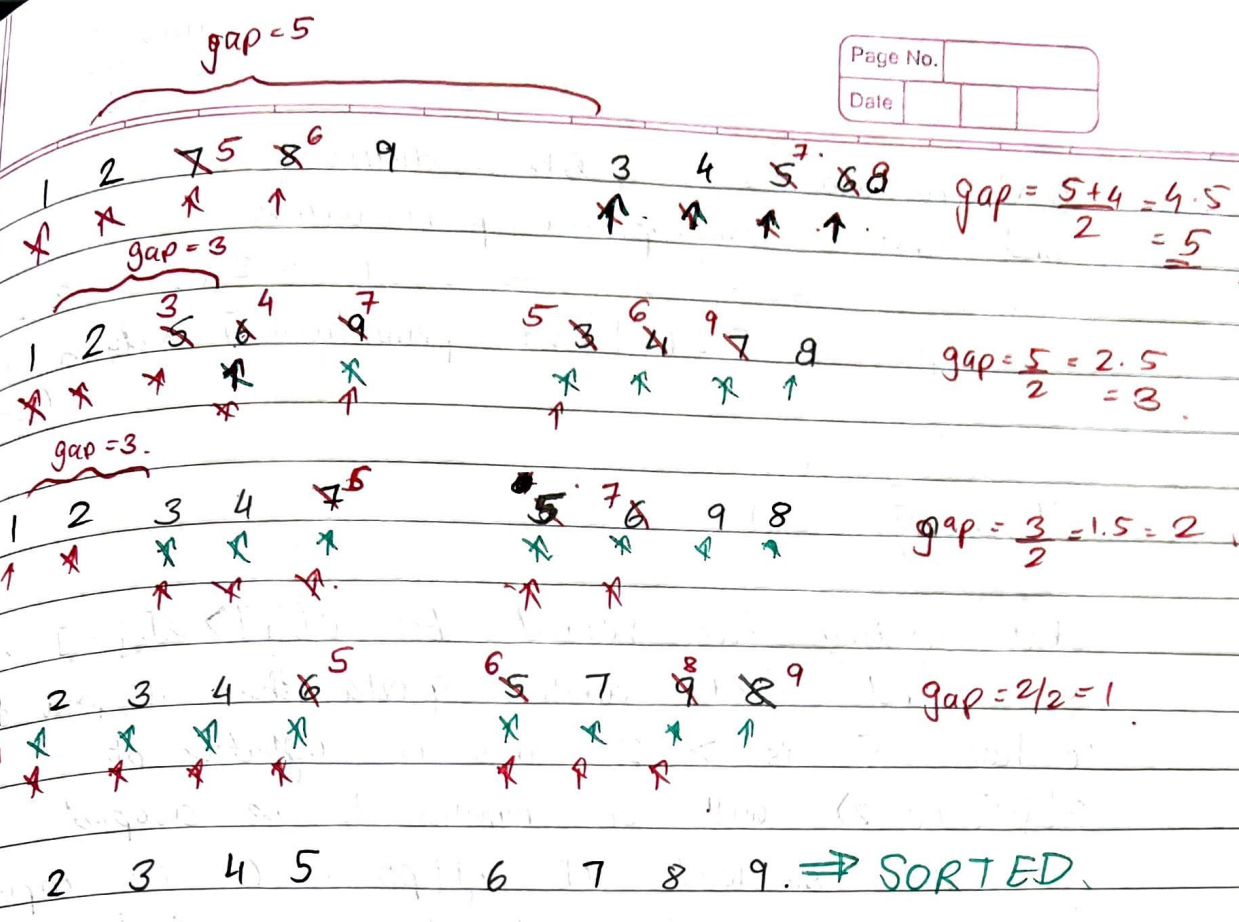 gap = 5
Page No.
Date
1 2 7 5 8 6 9 3 4 5 7 6 8 gap = 5+4/2 = 4.5 = 5
gap = 3
1 2 5 3 6 4 9 7 5 3 6 4 9 7 8 gap = 5/2 = 2.5 = 3
gap = 3.
1 2 3 4 7 6 5 7 6 9 8 gap = 3/2 = 1.5 = 2
2 3 4 6 5 6 5 7 9 8 8 9 gap = 2/2 = 1
2 3 4 5 6 7 8 9. ⇒ SORTED.